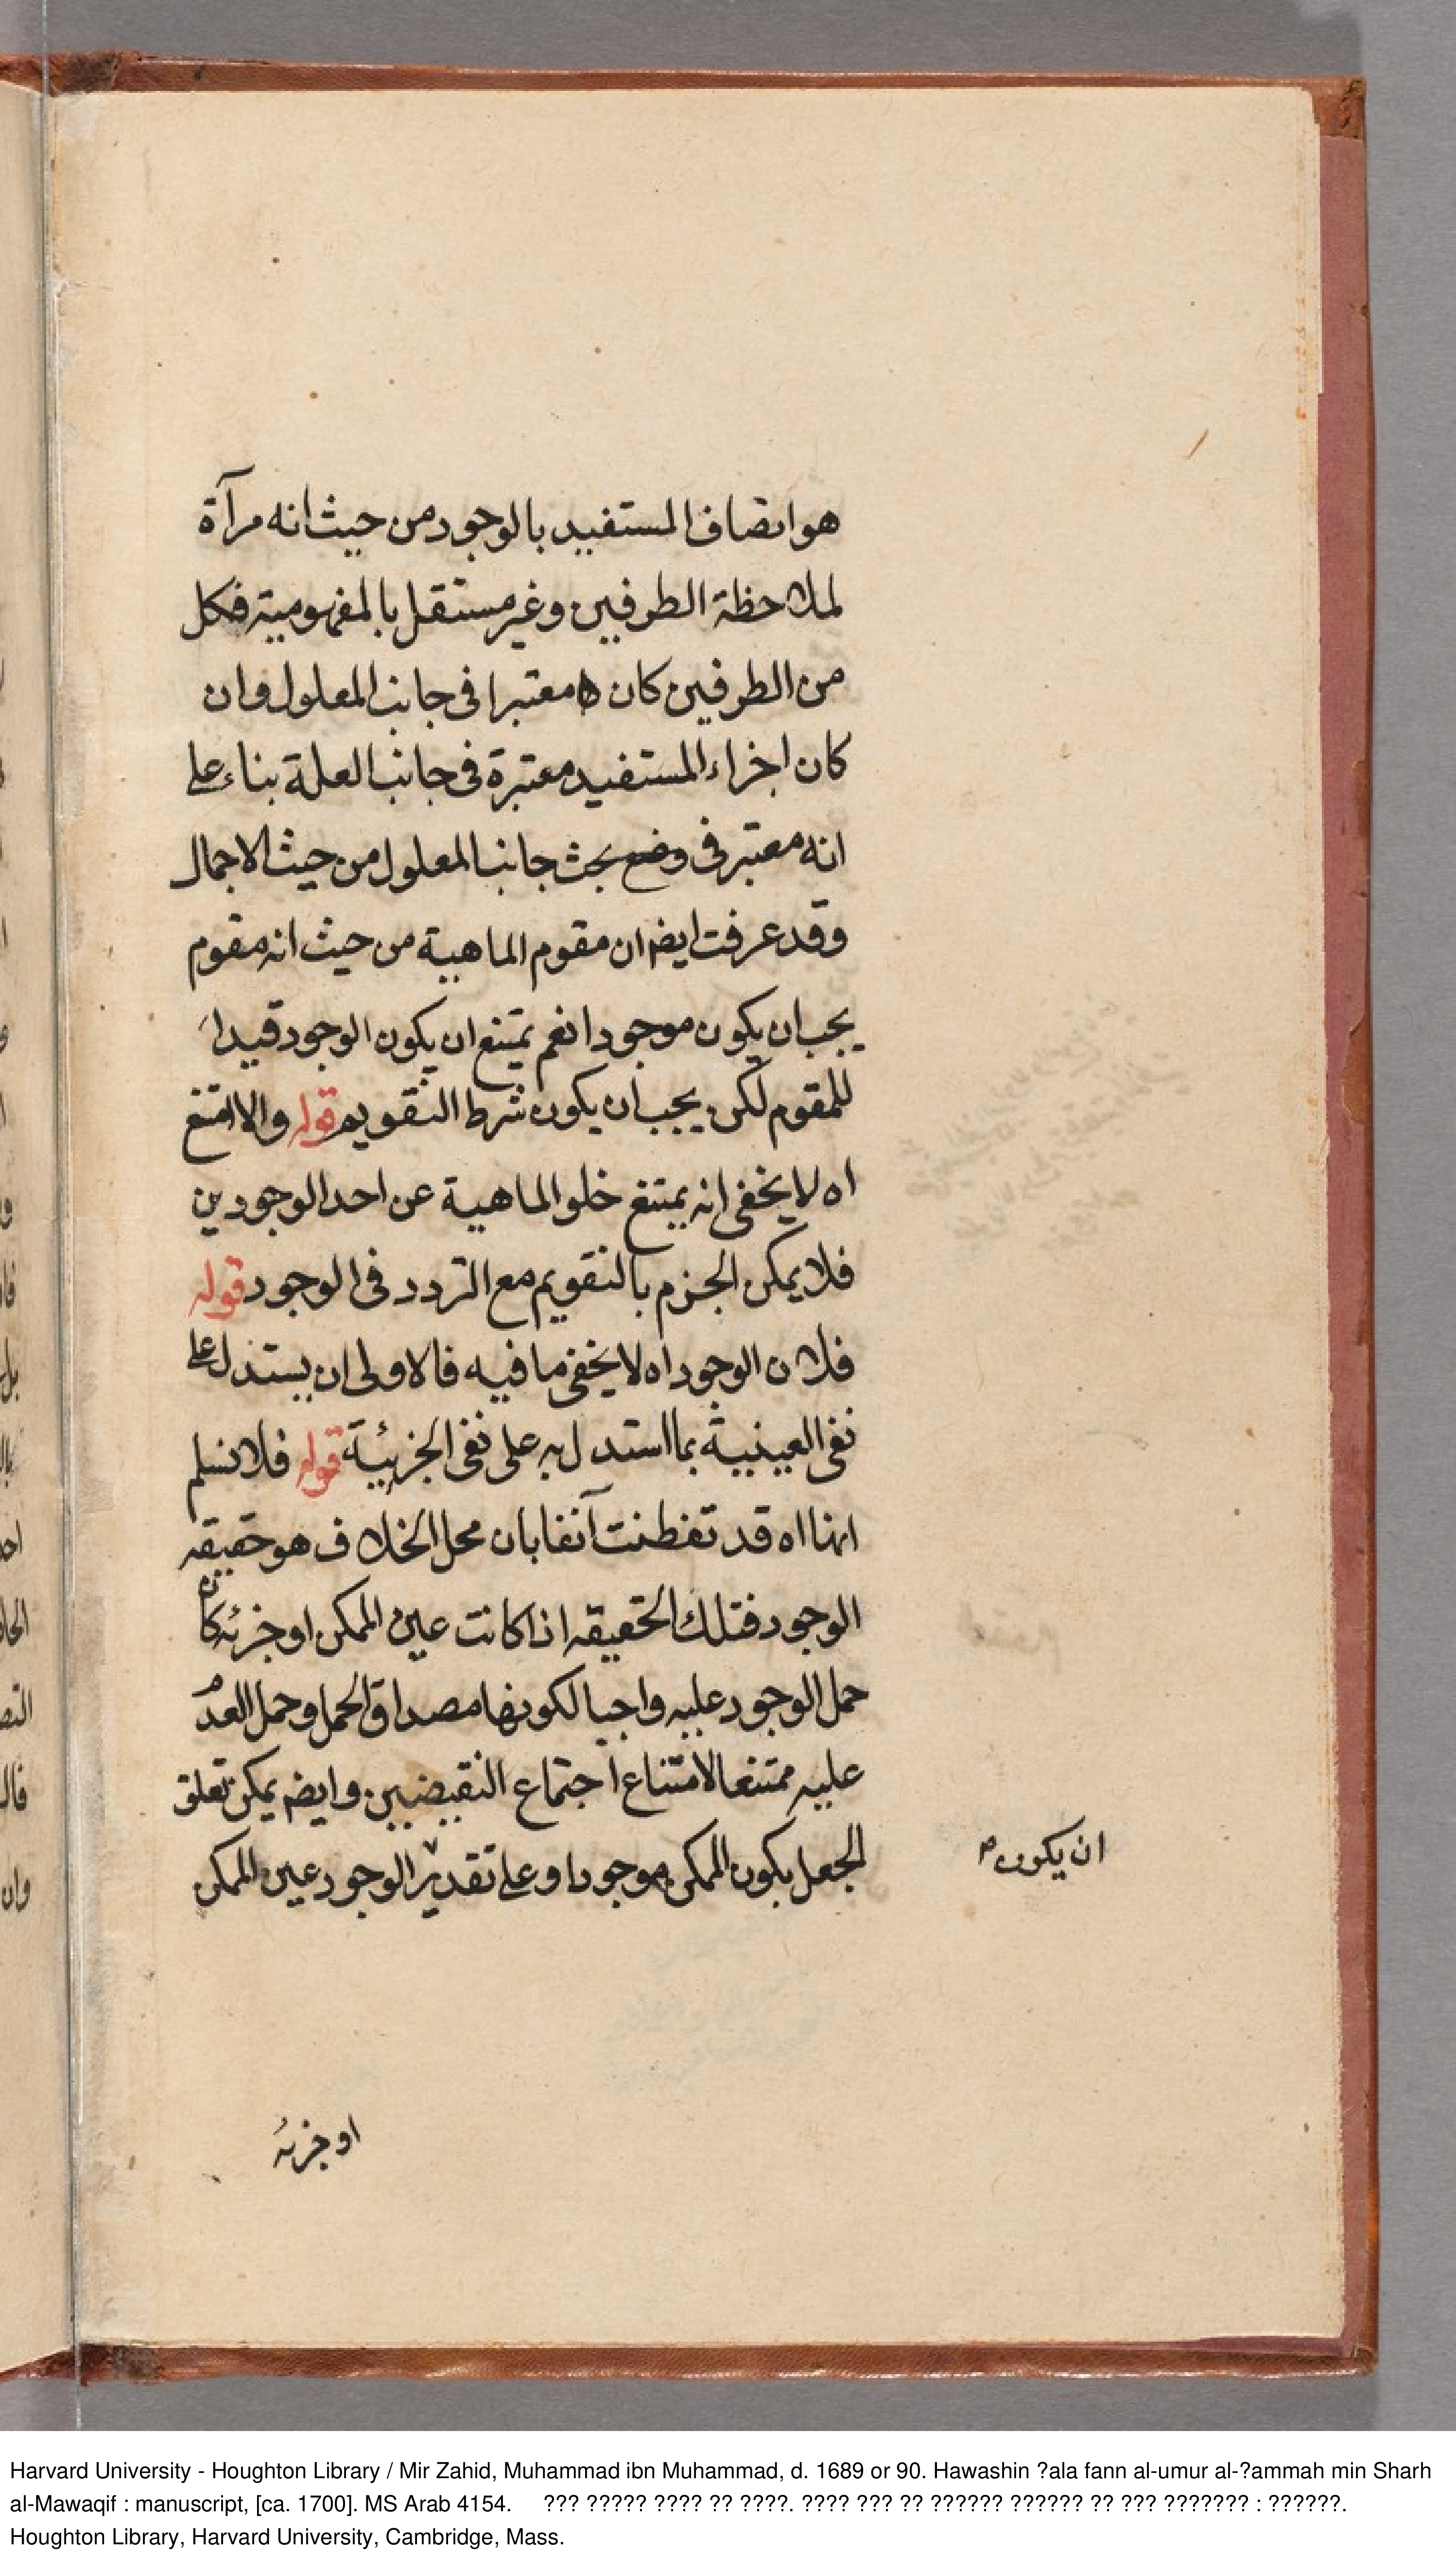 هو اتصاف المستفيد بالوجود من حيث انه مرآة
لملاحظة الطرفين وغير مستقل بالمفهومية فكل
من الطرفين كان معتبرا فى جانب المعلول وان
كان اجزاء المستفيد معتبرة فى جانب العلة بناء على
انه معتبر فى جانب المعلول من حيث الاجمال
وقد عرفت ايضا ان مقوم الماهية من حيث انه مقوم
يجب ان يكون موجودا نعم يمتنع ان يكون الوجود قيدا
للمقوم لكن يجب ان يكون شرط التقويم قوله والا امتنع
اه لا يخفى انه يمتنع خلو الماهية عن احد الوجودين
فلا يمكن الجزم بالتقويم مع التردد فى الوجود قوله
فلان الوجود اه لا يخفى ما فيه فالاولى ان يستدل على
نفى العينية بما استدل به على نفى الجزئية قوله فلا نسلم
انها اه قد تفطنت آنفا بان محل الخلاف هو حقيقه
الوجود فتلك الحقيقه اذا كانت عين الممكن او جزئه كان
حمل الوجود عليه واجبا لكونها مصداق الحمل وحمل العدم
عليه ممتنعا لامتناع اجتماع النقيضين وايضا يمكن تعلق
الجعل بكون الممكن موجودا وعلى تقدير الوجود عين الممكن
ان يكون
او جزئه
Harvard University - Houghton Library / Mir Zahid, Muhammad ibn Muhammad, d. 1689 or 90. Hawashin ?ala fann al-umur al-?ammah min Sharh
al-Mawaqif : manuscript, [ca. 1700]. MS Arab 4154. ??? ????? ???? ?? ????. ???? ??? ?? ?????? ?????? ?? ??? ??????? : ??????.
Houghton Library, Harvard University, Cambridge, Mass.